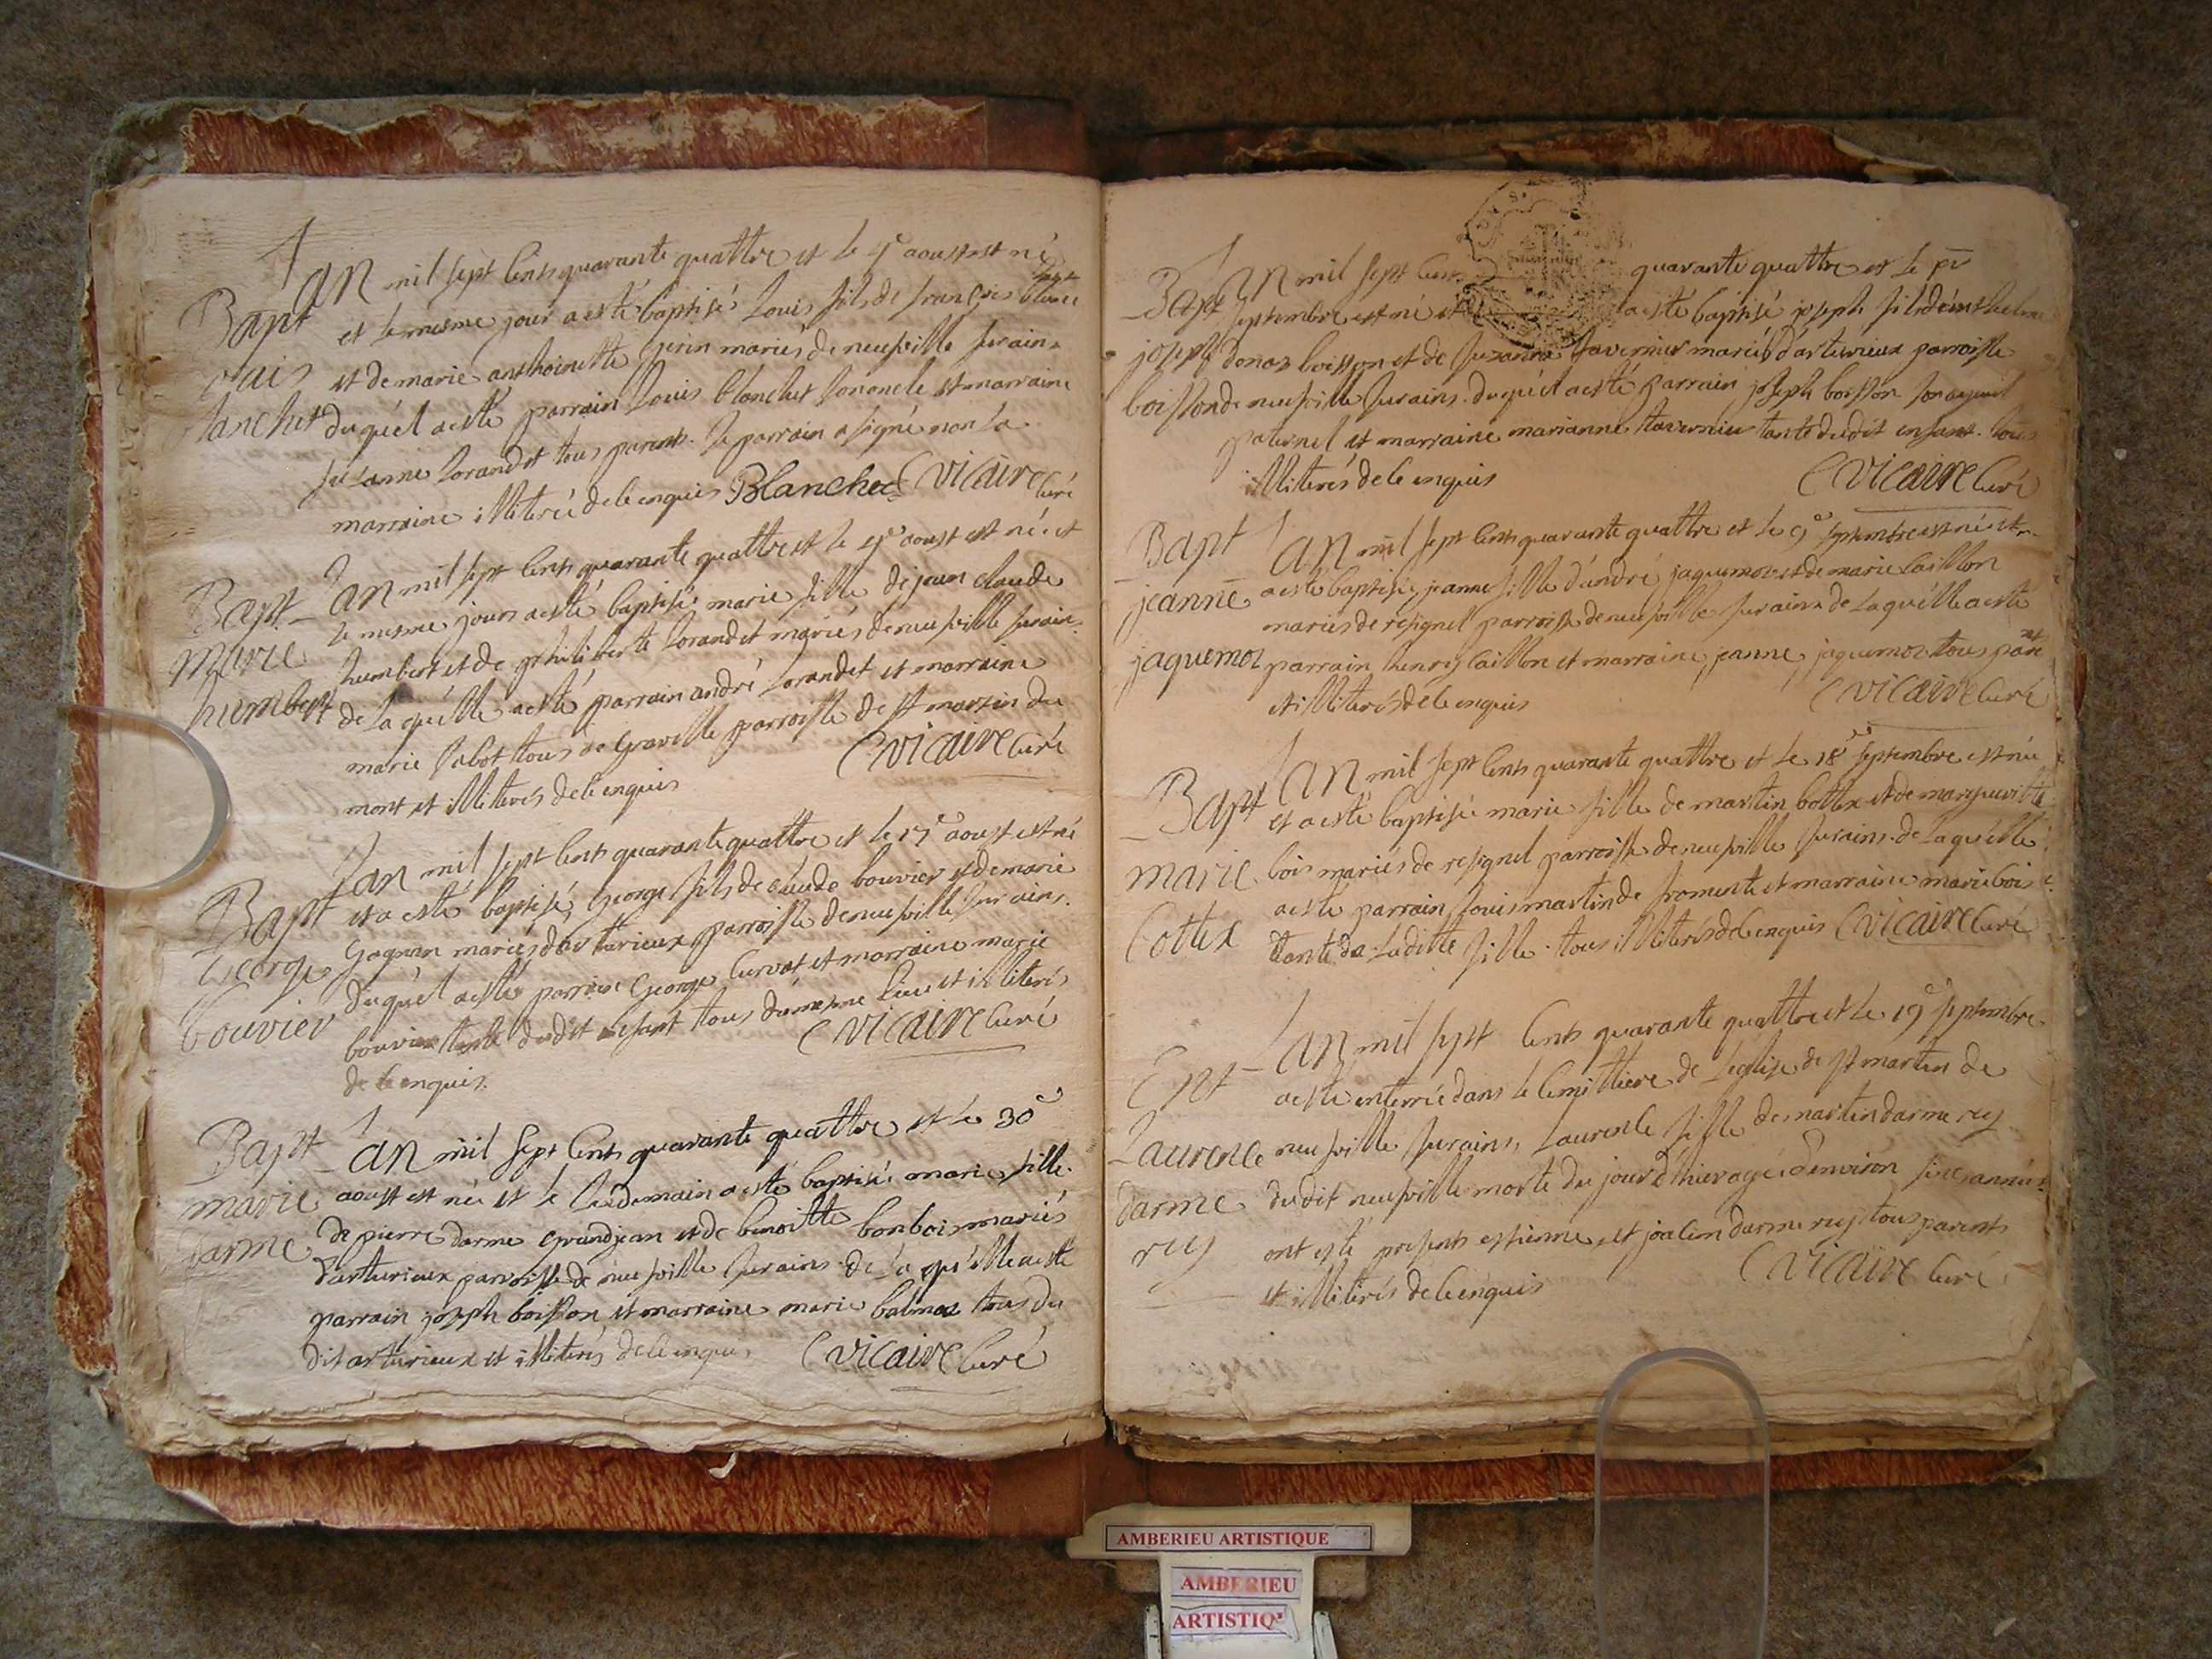 Bapt
Louis
Blanchet
L'an mil sept cents quarante quattre et le aoust est né
et le mesme jour a esté baptisé Louis fils de françois blanchet
et de marie anthoinette perin mariés de neufville surains
duquél a esté parrain Louis blanchet son oncle et marraine
suzanne Lorandet tous parents. le parrain a signé non la
marraine illiterée de ce enquis Blanchet Vicaire Curé
Bapt
marie
humbert
L'an mil sept cents quarante quattre et le aoust est née et
le mesme jour a esté baptisée marie fille de jean claude
humbert et de philiberte Lorandet mariés de neufville surains
de laquélle a esté parrain andré Lorandet et marraine
marie Sabot tous de Graville parroisse de st martin du
mont et illiterés de ce enquis Vicaire Curé
Bapt
George
bouvier
L'an mil sept cents quarante quattre et le 17e aoust est né
et a esté baptisé George fils de claude bouvier et de marie
Gagnan mariés d'arturieux parroisse de neufville surains.
duquél a esté parrain George Curvat et marraine marie
bouvier tante dudit enfant tous du mesme lieu et illiterés
de ce enquis. Vicaire Curé
Bapt
marie
darme
L'an mil sept cents quarante quattre et le 30e
aoust est née et le lendemain a esté baptisée marie fille
de pierre darme grandjean et de benoitte bonbois mariés
d'arturieux parroisse de neufville surains de la quélle a esté
parrain joseph boisson et marraine marie balmaz tous du
dit arturieux et illiterés de ce enquis Vicaire Curé
Bapt
joseph
boisson
L'an mil sept cents quarante quattre et le pr
septembre est né et a esté baptisé joseph fils d'anthelme
donaz boisson et de suzanne tavernier mariés d'arturieux parroisse
de neufville surains. duquél a esté parrain joseph boisson son ayeul
paternel et marraine marianne tavernier tante dudit enfant. tous
illiterés de ce enquis Vicaire Curé
Bapt
jeanne
jaquemoz
L'an mil sept cents quarante quattre et le 9e septembre est née et
a esté baptisée jeanne fille d'andré jaquemoz et de marie Caillon
mariés de resignel parroisse de neufville surains de laquélle a esté
parrain henry Caillon et marraine jeanne jaquemoz tous parents
et illiterés de ce enquis Vicaire Curé
Bapt
marie
Cottex
L'an mil sept cents quarante quattre et le 18e septembre est née
et a esté baptisée marie fille de martin Cottex et de marguerite
bois mariés de resignel parroisse de neufville surains. de laquélle
a esté parrain Louis martin de fromente et marraine marie bois
tante de laditte fille. tous illiterés de ce enquis Vicaire Curé
Ent
Laurence
darme
rey
L'an mil sept cents quarante quattre et le 19e septembre
a esté enterrée dans le cemittiere de l'eglise de st martin de
neufville surains, Laurence fille de martin darme rey
dudit neufville morte du jour d'hier agée d'environ six années
ont esté presents estienne et joachim darme rey tous parents
et illiterés de ce enquis Vicaire Curé
AMBERIEU ARTISTIQUE
AMBERIEU
ARTISTIQ